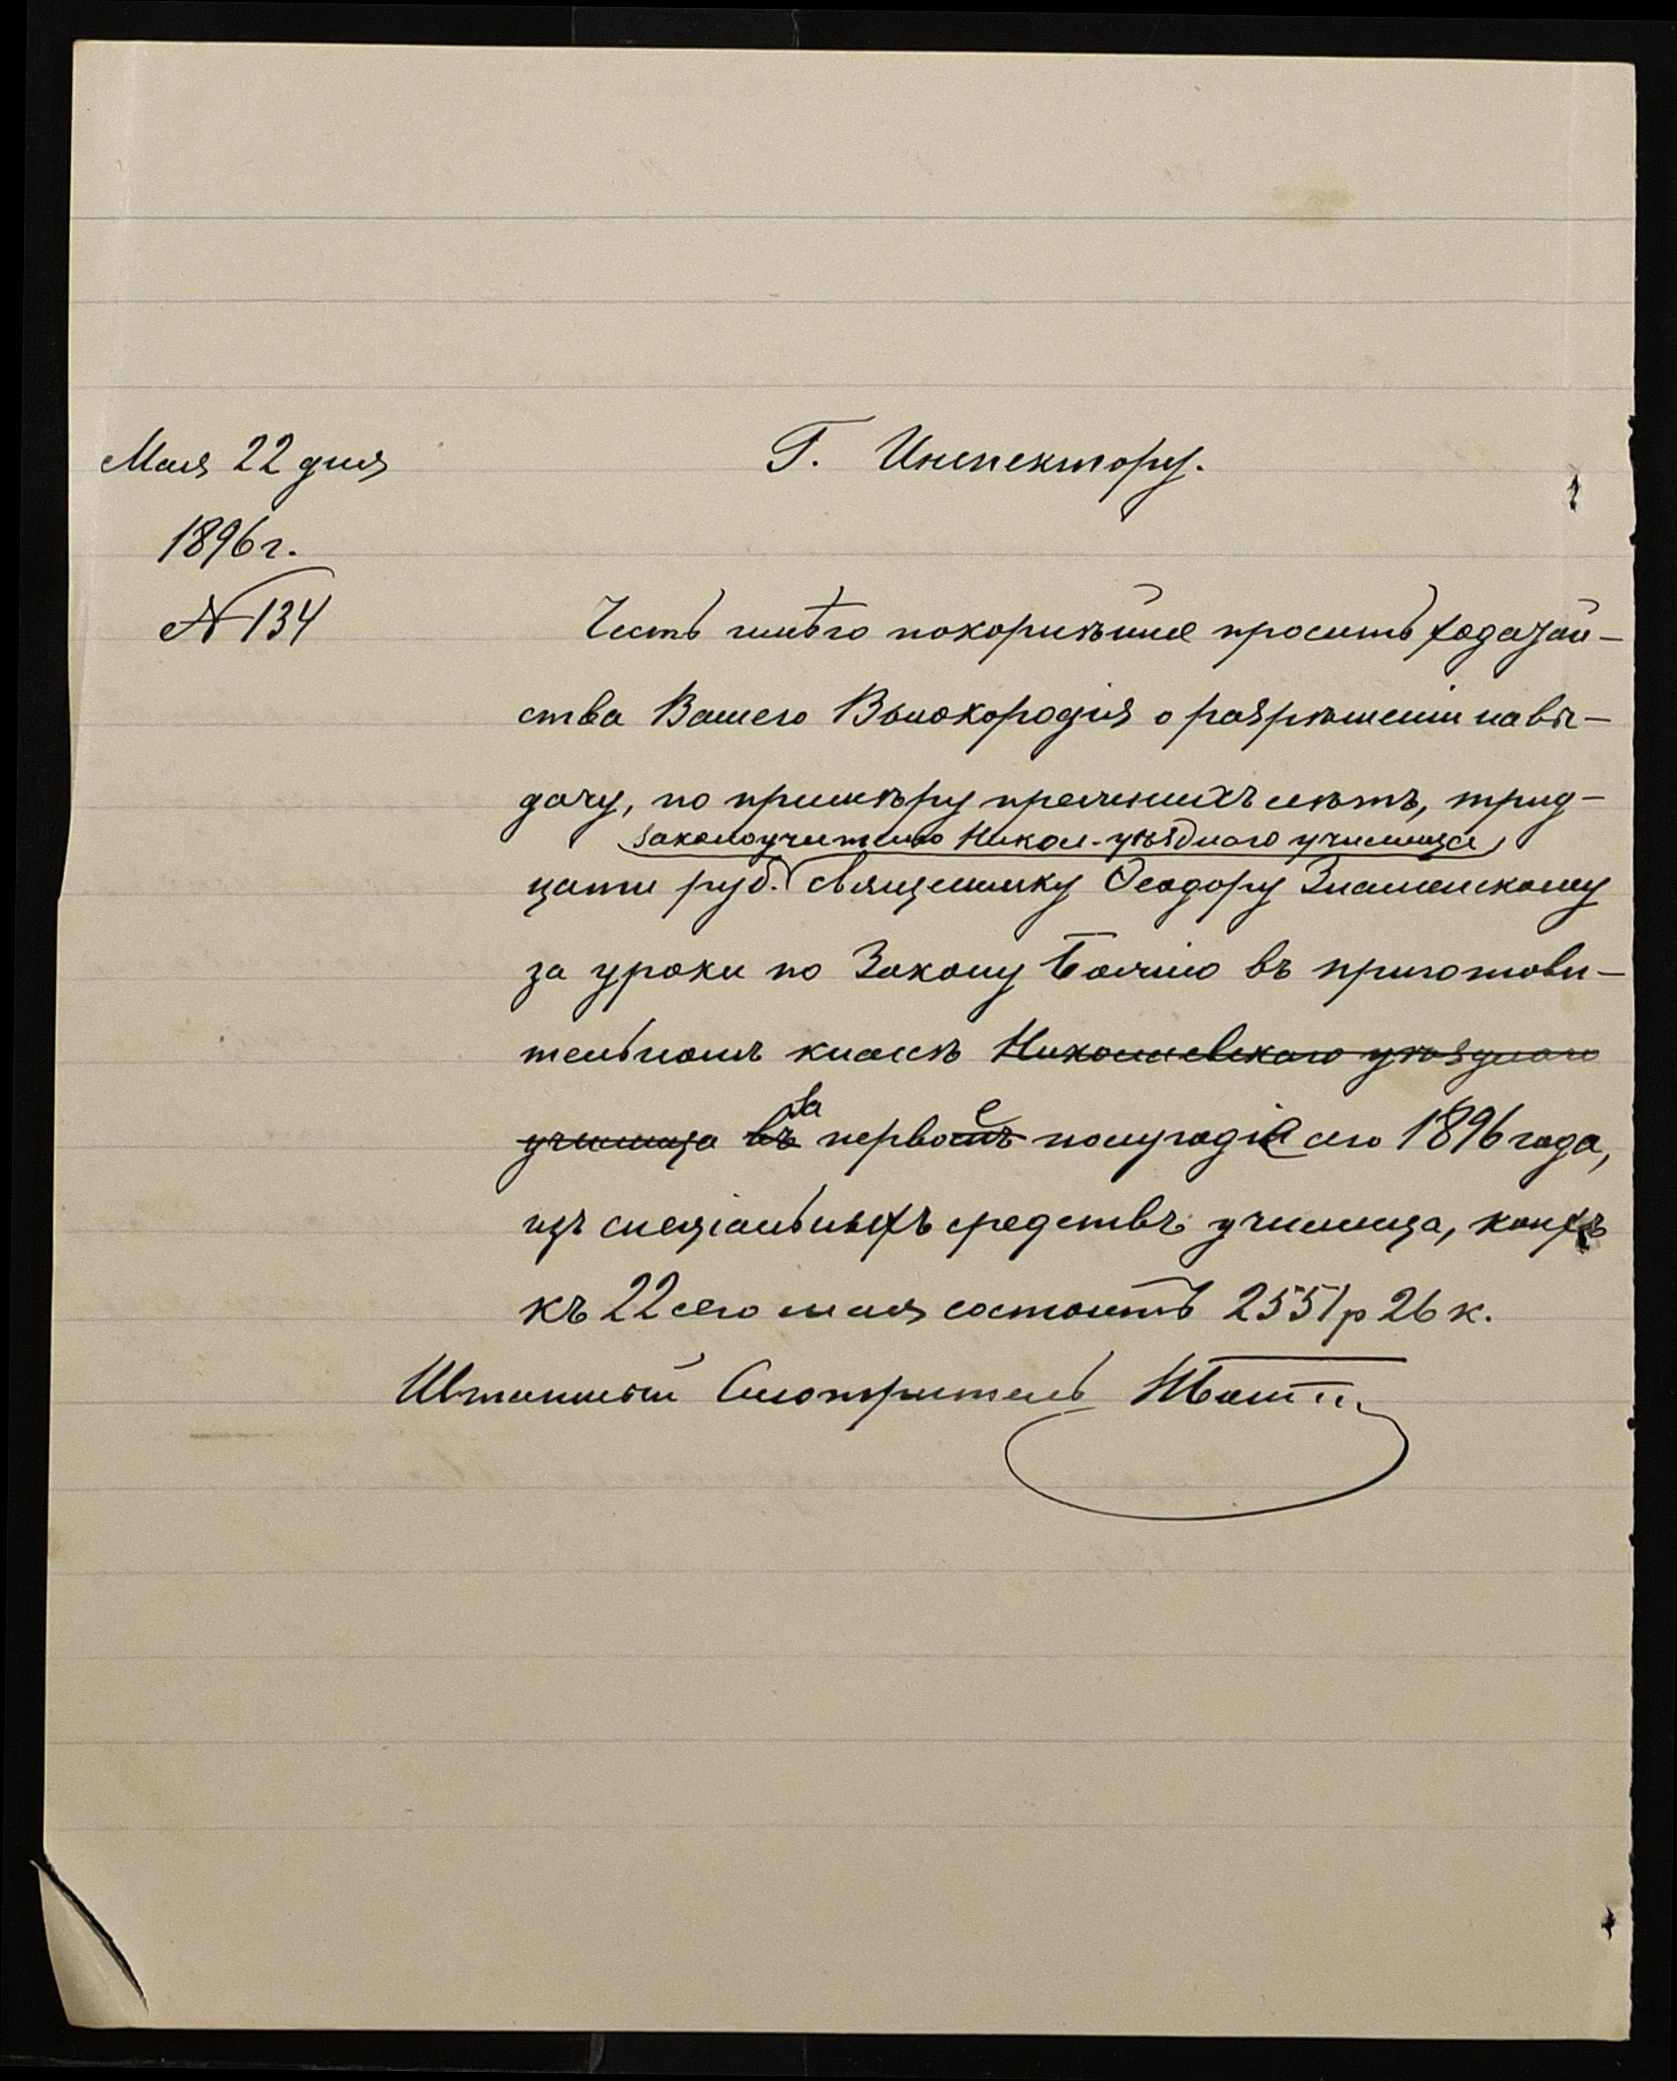 Мая 22 дня
1896 г.
№ 134
Г. Инспектору.
Честь имѣю покорнѣйше просить ходатай-
ства Вашего Высокородія о разрѣшеніи на вы-
дачу, по примѣру прежнихъ лѣтъ, трид-
законоучителю Никол. уѣзднаго училища
цати руб. священнику Ѳеодору Знаменскому
за уроки по Закону Божію въ приготови-
тельномъ классѣ Николаевскаго уѣзднаго
за е
училища въ первомъ полугодіе сего 1896 года,
изъ спеціальныхъ средствъ училища, коихъ
къ 22 сего мая состоитъ 2551 р 26 к.
Штатный Смотритель